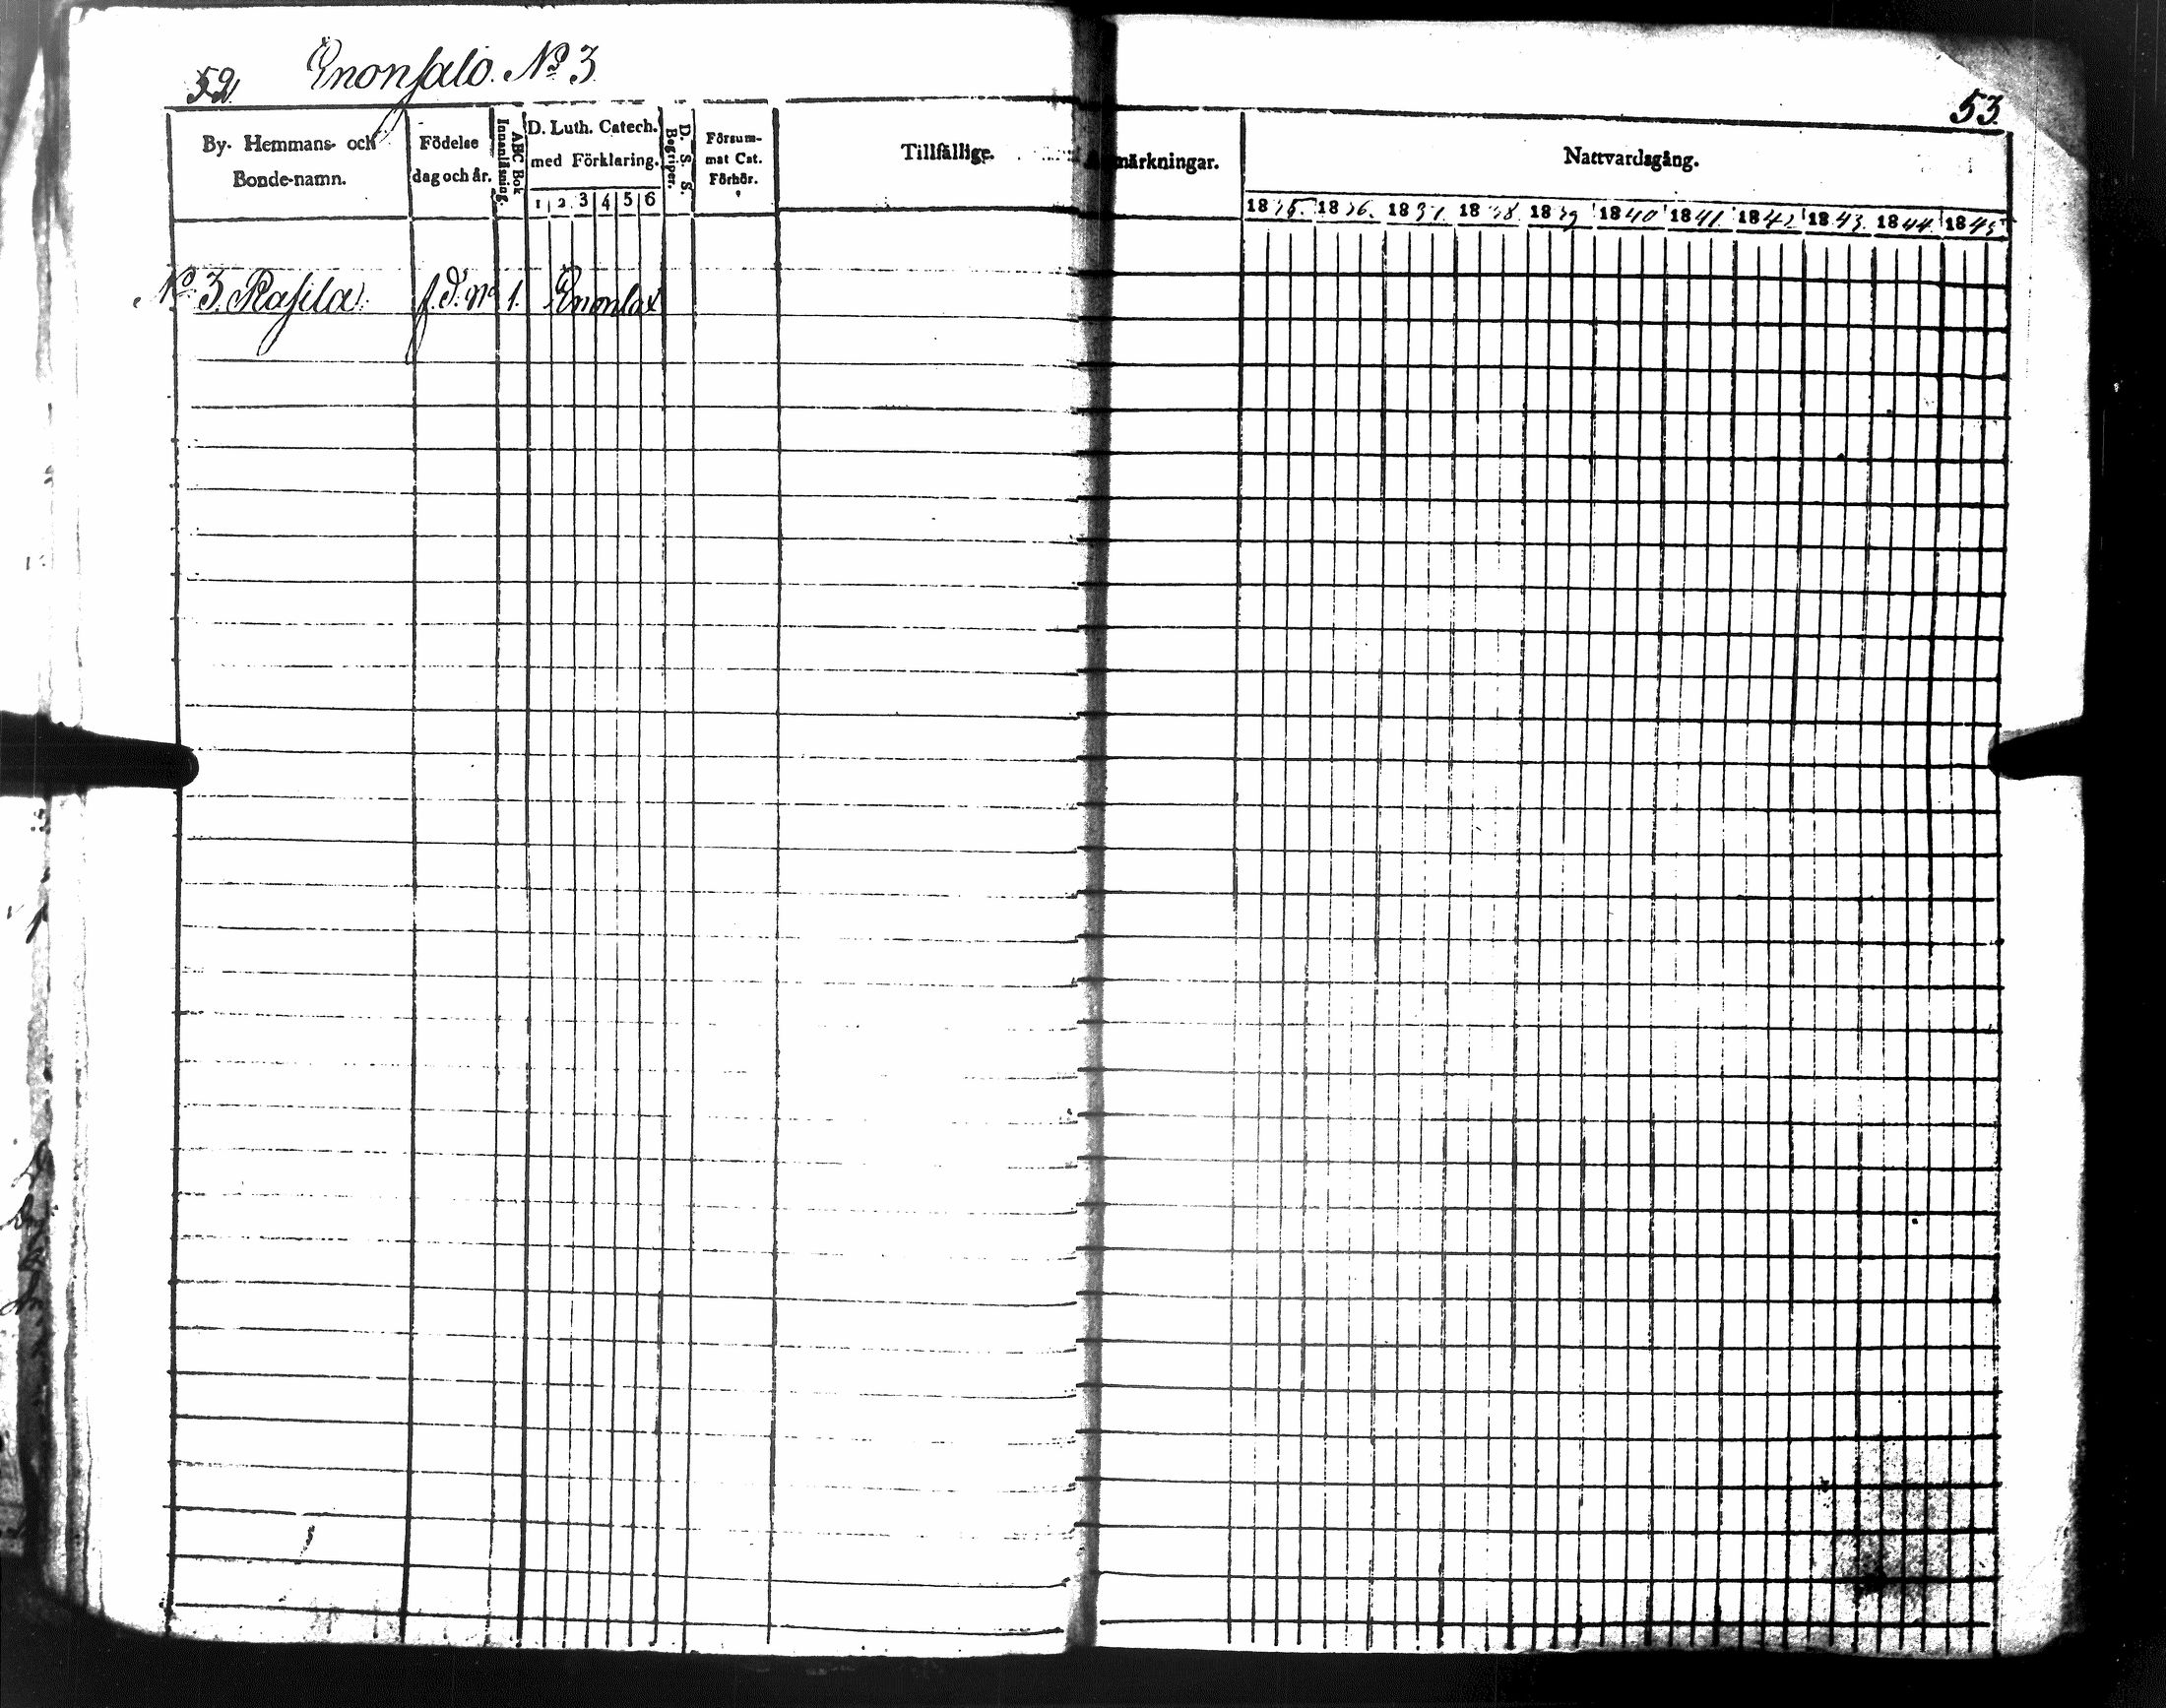 52. Enonsalo. No 3
53.
By- Hemmans- och Bonde-namn.
Födelse dag och år.
Innanläsning.
ABC Bok
D. Luth. Catech. med Förklaring.
1 2 3 4 5 6
D. S. S. Begriper.
Försum- mat Cat. Förhör.
Tillfällige.
märkningar.
Nattvardsgång.
1835. 1836. 1837. 1838. 1839 1840 1841. 1842 1843. 1844. 1845
No 3. Rasila. f. d. No 1. Enonlax